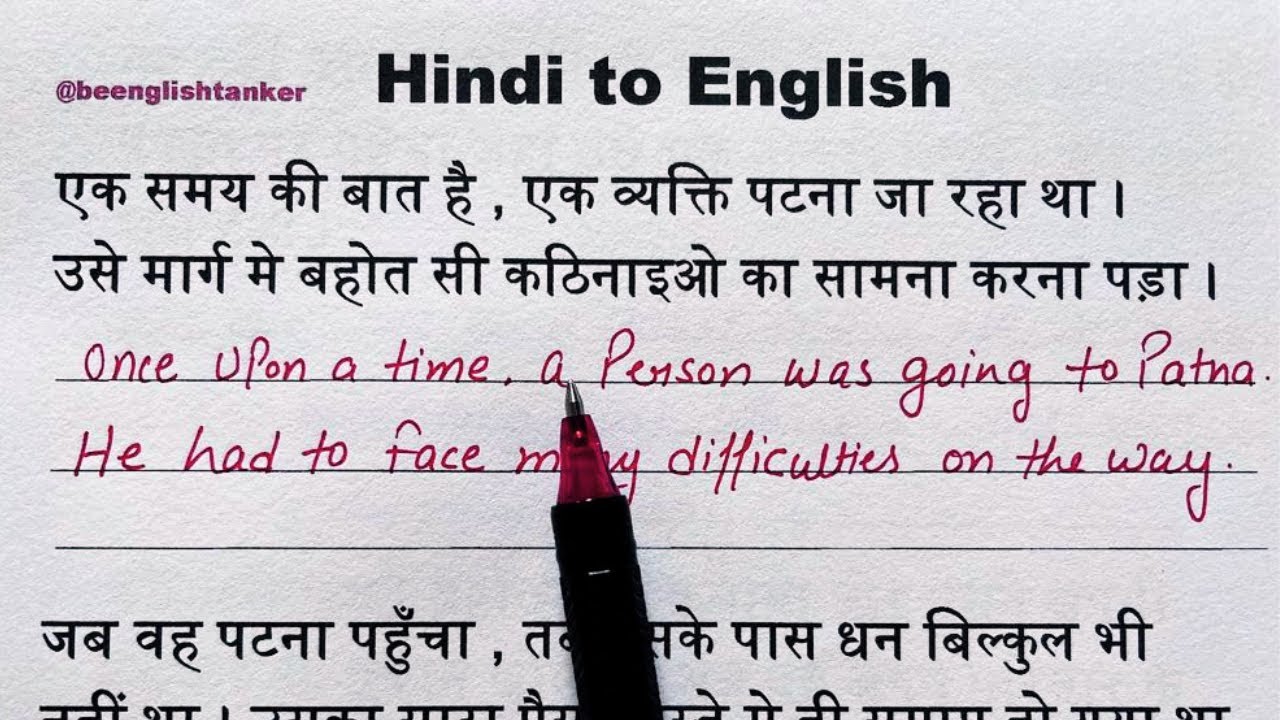 @beenglishtanker Hindi to English
एक समय की बात है , एक व्यक्ति पटना जा रहा था ।
उसे मार्ग मे बहोत सी कठिनाइओ का सामना करना पड़ा ।
Once upon a time, a Person was going to Patna.
He had to face many difficulties on the way.
जब वह पटना पहुँचा , पास धन बिल्कुल भी
नहीं था । उसका सारा मे ही समाप्त हो गया था